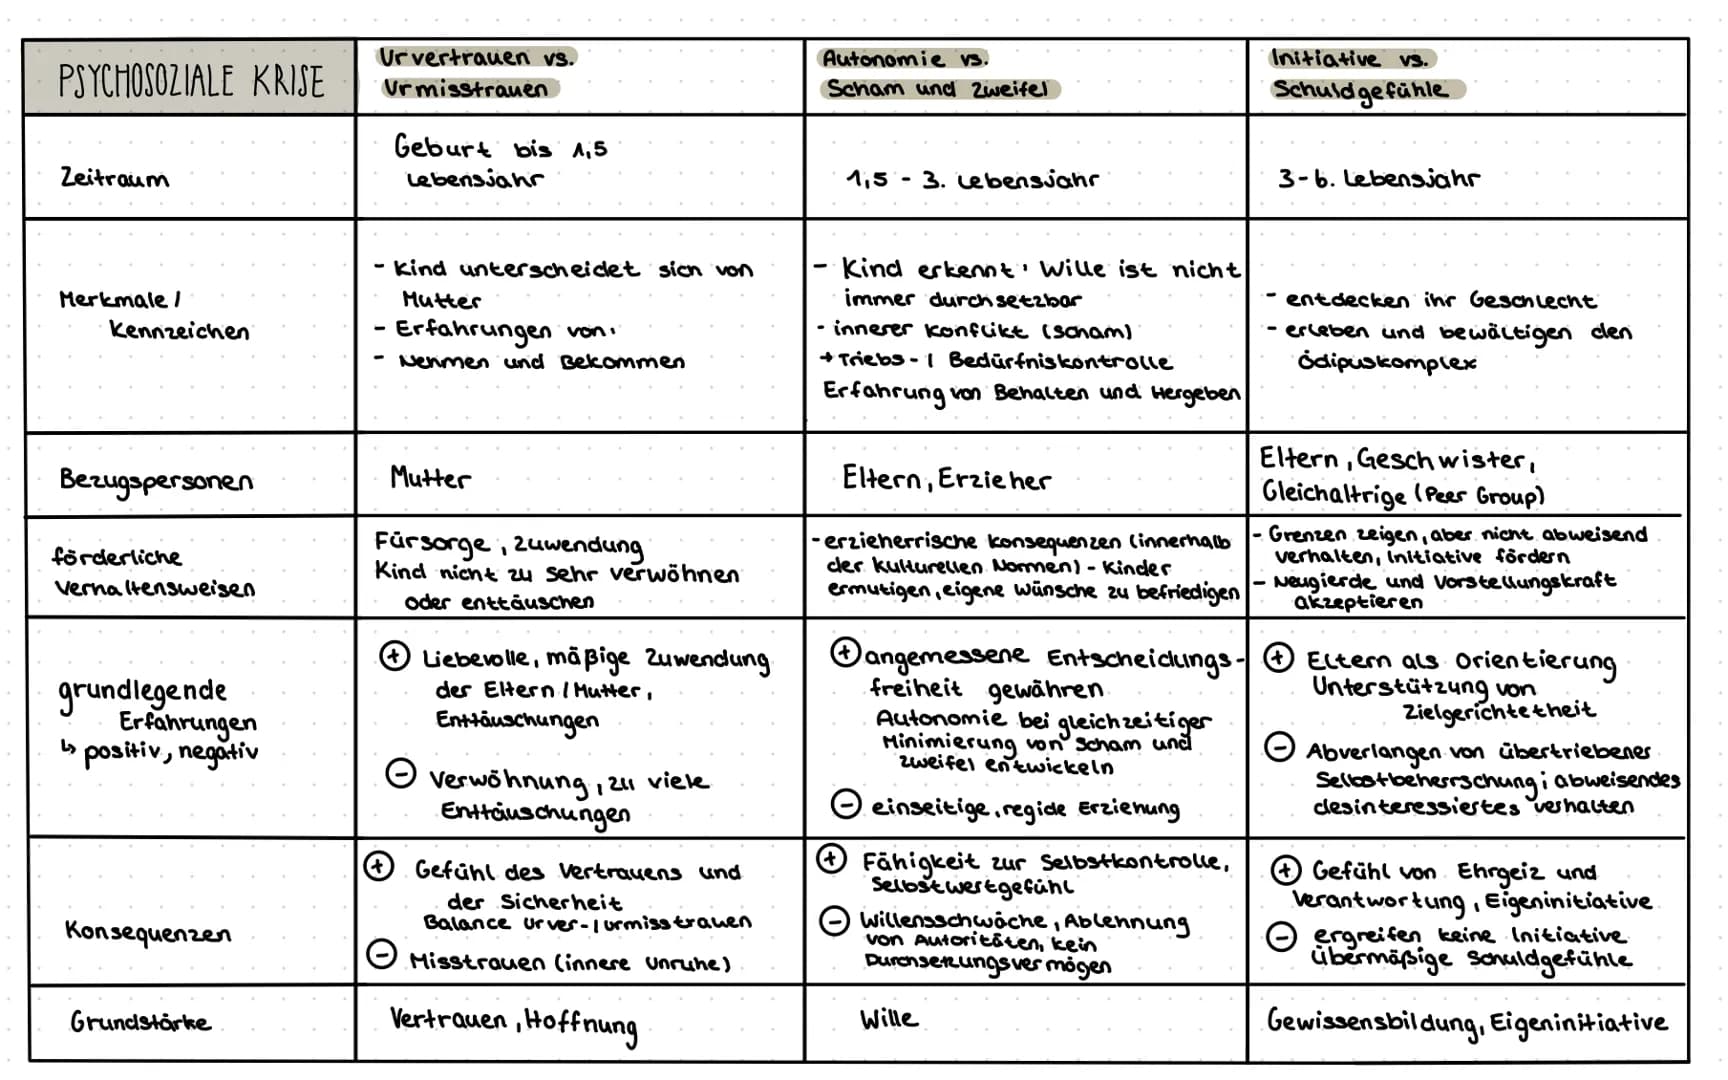 PSYCHOSOZIALE KRISE
Urvertrauen vs.
Urmisstrauen
Autonomie vs.
Scham und Zweifel
Initiative vs.
Schuldgefühle
Zeitraum
Geburt bis 1,5
Lebensjahr
1,5 - 3. Lebensjahr
3-6. Lebensjahr
Merkmale /
Kennzeichen
- Kind unterscheidet sich von
Mutter
- Erfahrungen von:
- Nehmen und Bekommen
- Kind erkennt: Wille ist nicht
immer durchsetzbar
- innerer Konflikt (Scham)
→ Triebs- / Bedürfniskontrolle
Erfahrung von Behalten und Hergeben
- entdecken ihr Geschlecht
- erleben und bewältigen den
Ödipuskomplex
Bezugspersonen
Mutter
Eltern, Erzieher
Eltern, Geschwister,
Gleichaltrige (Peer Group)
förderliche
Verhaltensweisen
Fürsorge, Zuwendung
Kind nicht zu sehr verwöhnen
oder enttäuschen
- erzieherrische Konsequenzen (innerhalb
der kulturellen Normen) - Kinder
ermutigen, eigene Wünsche zu befriedigen
- Grenzen zeigen, aber nicht abweisend
verhalten, Initiative fördern
- Neugierde und Vorstellungskraft
akzeptieren
grundlegende
Erfahrungen
↳ positiv, negativ
⊕ Liebevolle, mäßige Zuwendung
der Eltern / Mutter,
Enttäuschungen
⊖ Verwöhnung, zu viele
Enttäuschungen
⊕ angemessene Entscheidungs-
freiheit gewähren
Autonomie bei gleichzeitiger
Minimierung von Scham und
Zweifel entwickeln
⊖ einseitige, regide Erziehung
⊕ Eltern als Orientierung
Unterstützung von
Zielgerichtetheit
⊖ Abverlangen von übertriebener
Selbstbeherrschung; abweisendes
desinteressiertes Verhalten
Konsequenzen
⊕ Gefühl des Vertrauens und
der Sicherheit
Balance Urver-/Urmisstrauen
⊖ Misstrauen (innere Unruhe)
⊕ Fähigkeit zur Selbstkontrolle,
Selbstwertgefühl
⊖ Willensschwäche, Ablehnung
von Autoritäten, kein
Durchsetzungsvermögen
⊕ Gefühl von Ehrgeiz und
Verantwortung, Eigeninitiative
⊖ ergreifen keine Initiative
übermäßige Schuldgefühle
Grundstärke
Vertrauen, Hoffnung
Wille
Gewissensbildung, Eigeninitiative